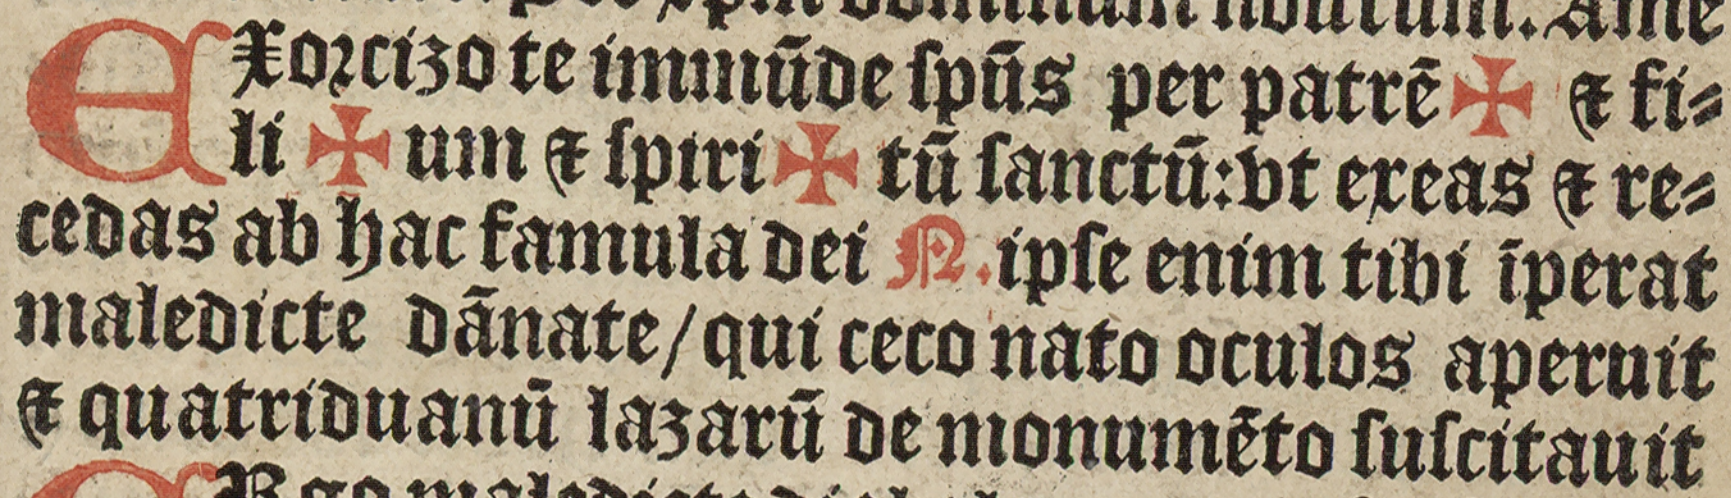 dominum nostrum. Amē
EXorcizo te immūde ſpūs per patrē ✠ & fi⸗
li ✠ um & ſpiri ✠ tū ſanctū: vt exeas & re⸗
cedas ab hac famula dei N. ipſe enim tibi īperat
maledicte dānate/ qui ceco nato oculos aperuit
& quatriduanū lazarū de monumēto ſuſcitauit
ERgo maledicte